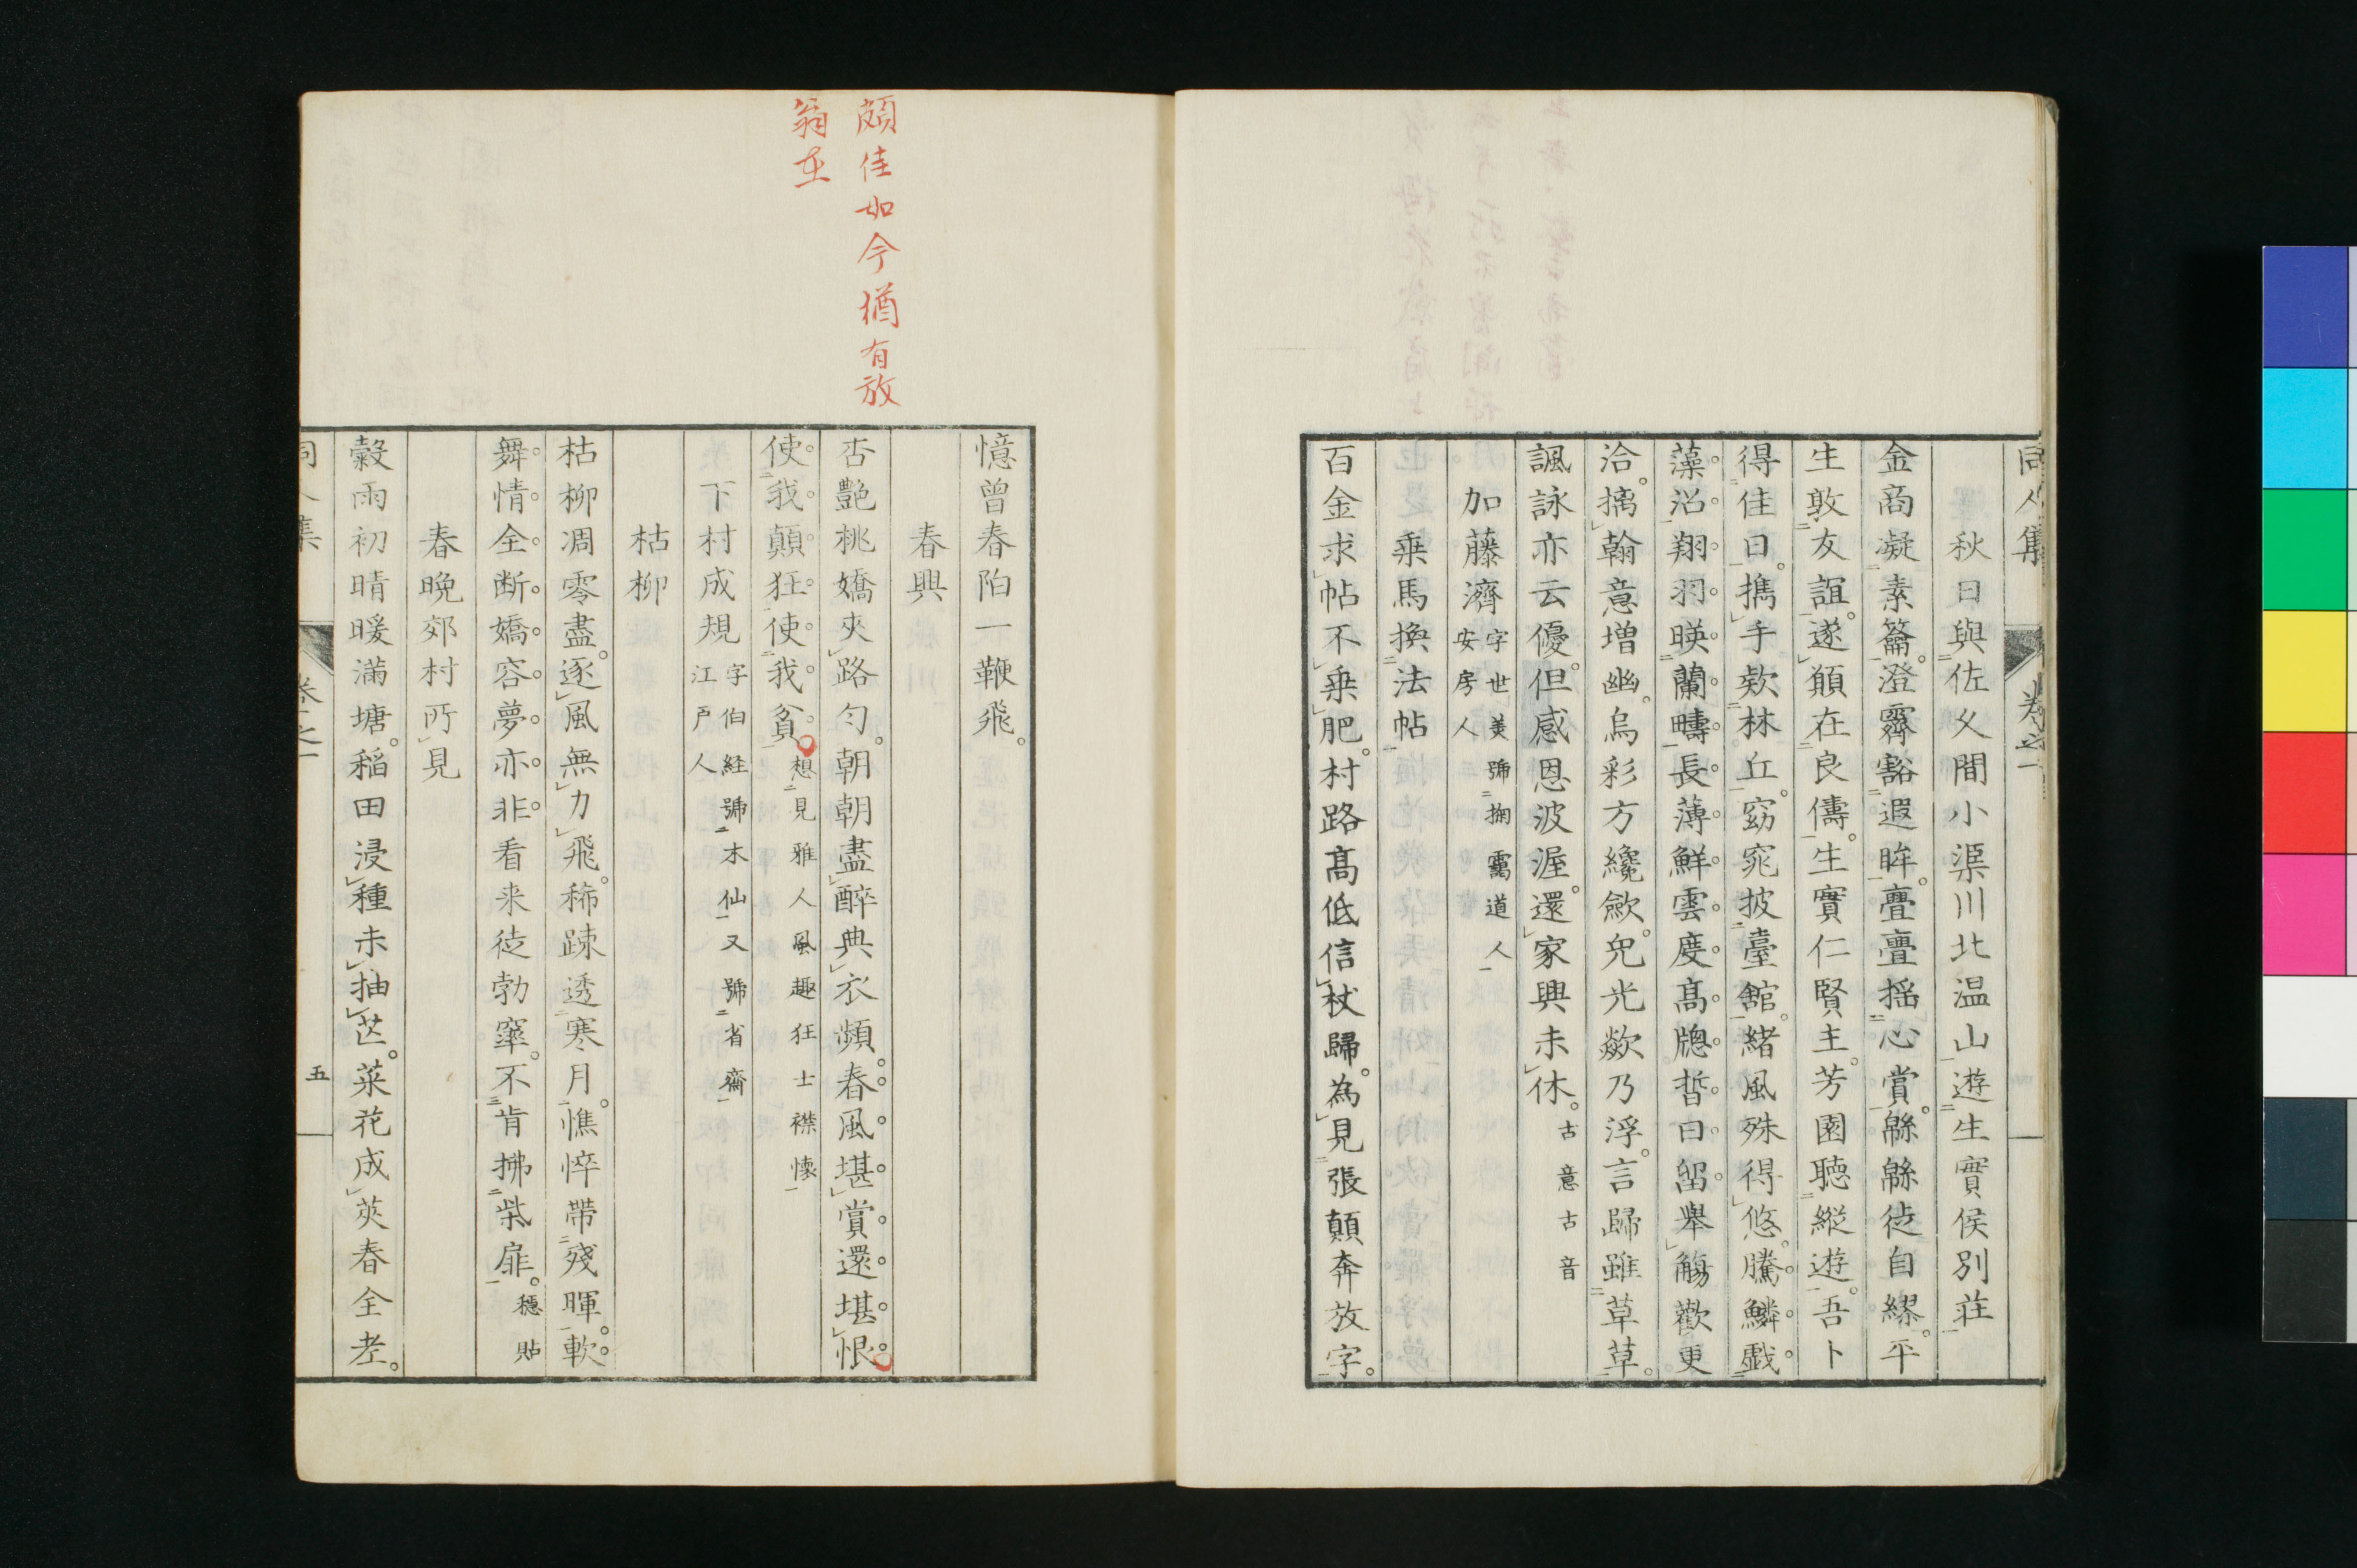 同人集 巻之一
秋日與佐乆間小渠川北温山遊生實侯別莊
金商凝素籥。澄霽豁遐眸。亹亹揺心賞。緜緜徒自繆。平
生敦友誼。遂願在良儔。生實仁賢主。芳園聴縦遊。吾卜
得佳日。携手欸林丘。窈窕披臺舘。緒風殊得悠。騰鱗戯
藻沼。翔羽暎蘭疇。長薄鮮雲度。高牕晢曰留。舉觴歡更
洽。摛翰意増幽。烏彩方纔歛。兜光歘乃浮。言歸雖草草。
諷詠亦云優。但感恩波渥。還家興未休。古意古音
加藤濟字世美號掬靄道人安房人
乗馬換法帖
百金求帖不乗肥。村路高低信杖歸。為見張顛奔放字。
頗佳如今猶有放
翁在
憶曾春陌一鞭飛。
春興
杏艶桃嬌夾路匀。朝朝盡醉典衣頻。春風堪賞還堪恨。
使我顛狂使我貧。想見雅人風趣狂士襟懐
下村成規字伯経號木仙又號省齋江戸人
枯柳
枯柳凋零盡。逐風無力飛。稀踈透寒月。憔悴帶殘暉。軟
舞情全断。嬌容夢亦非。看来徒勃窣。不肯拂柴扉。穏貼
春晩郊村所見
穀雨初晴暖滿塘。稲田浸種未抽芒。菜花成莢春全老。
同人集 巻之一 五